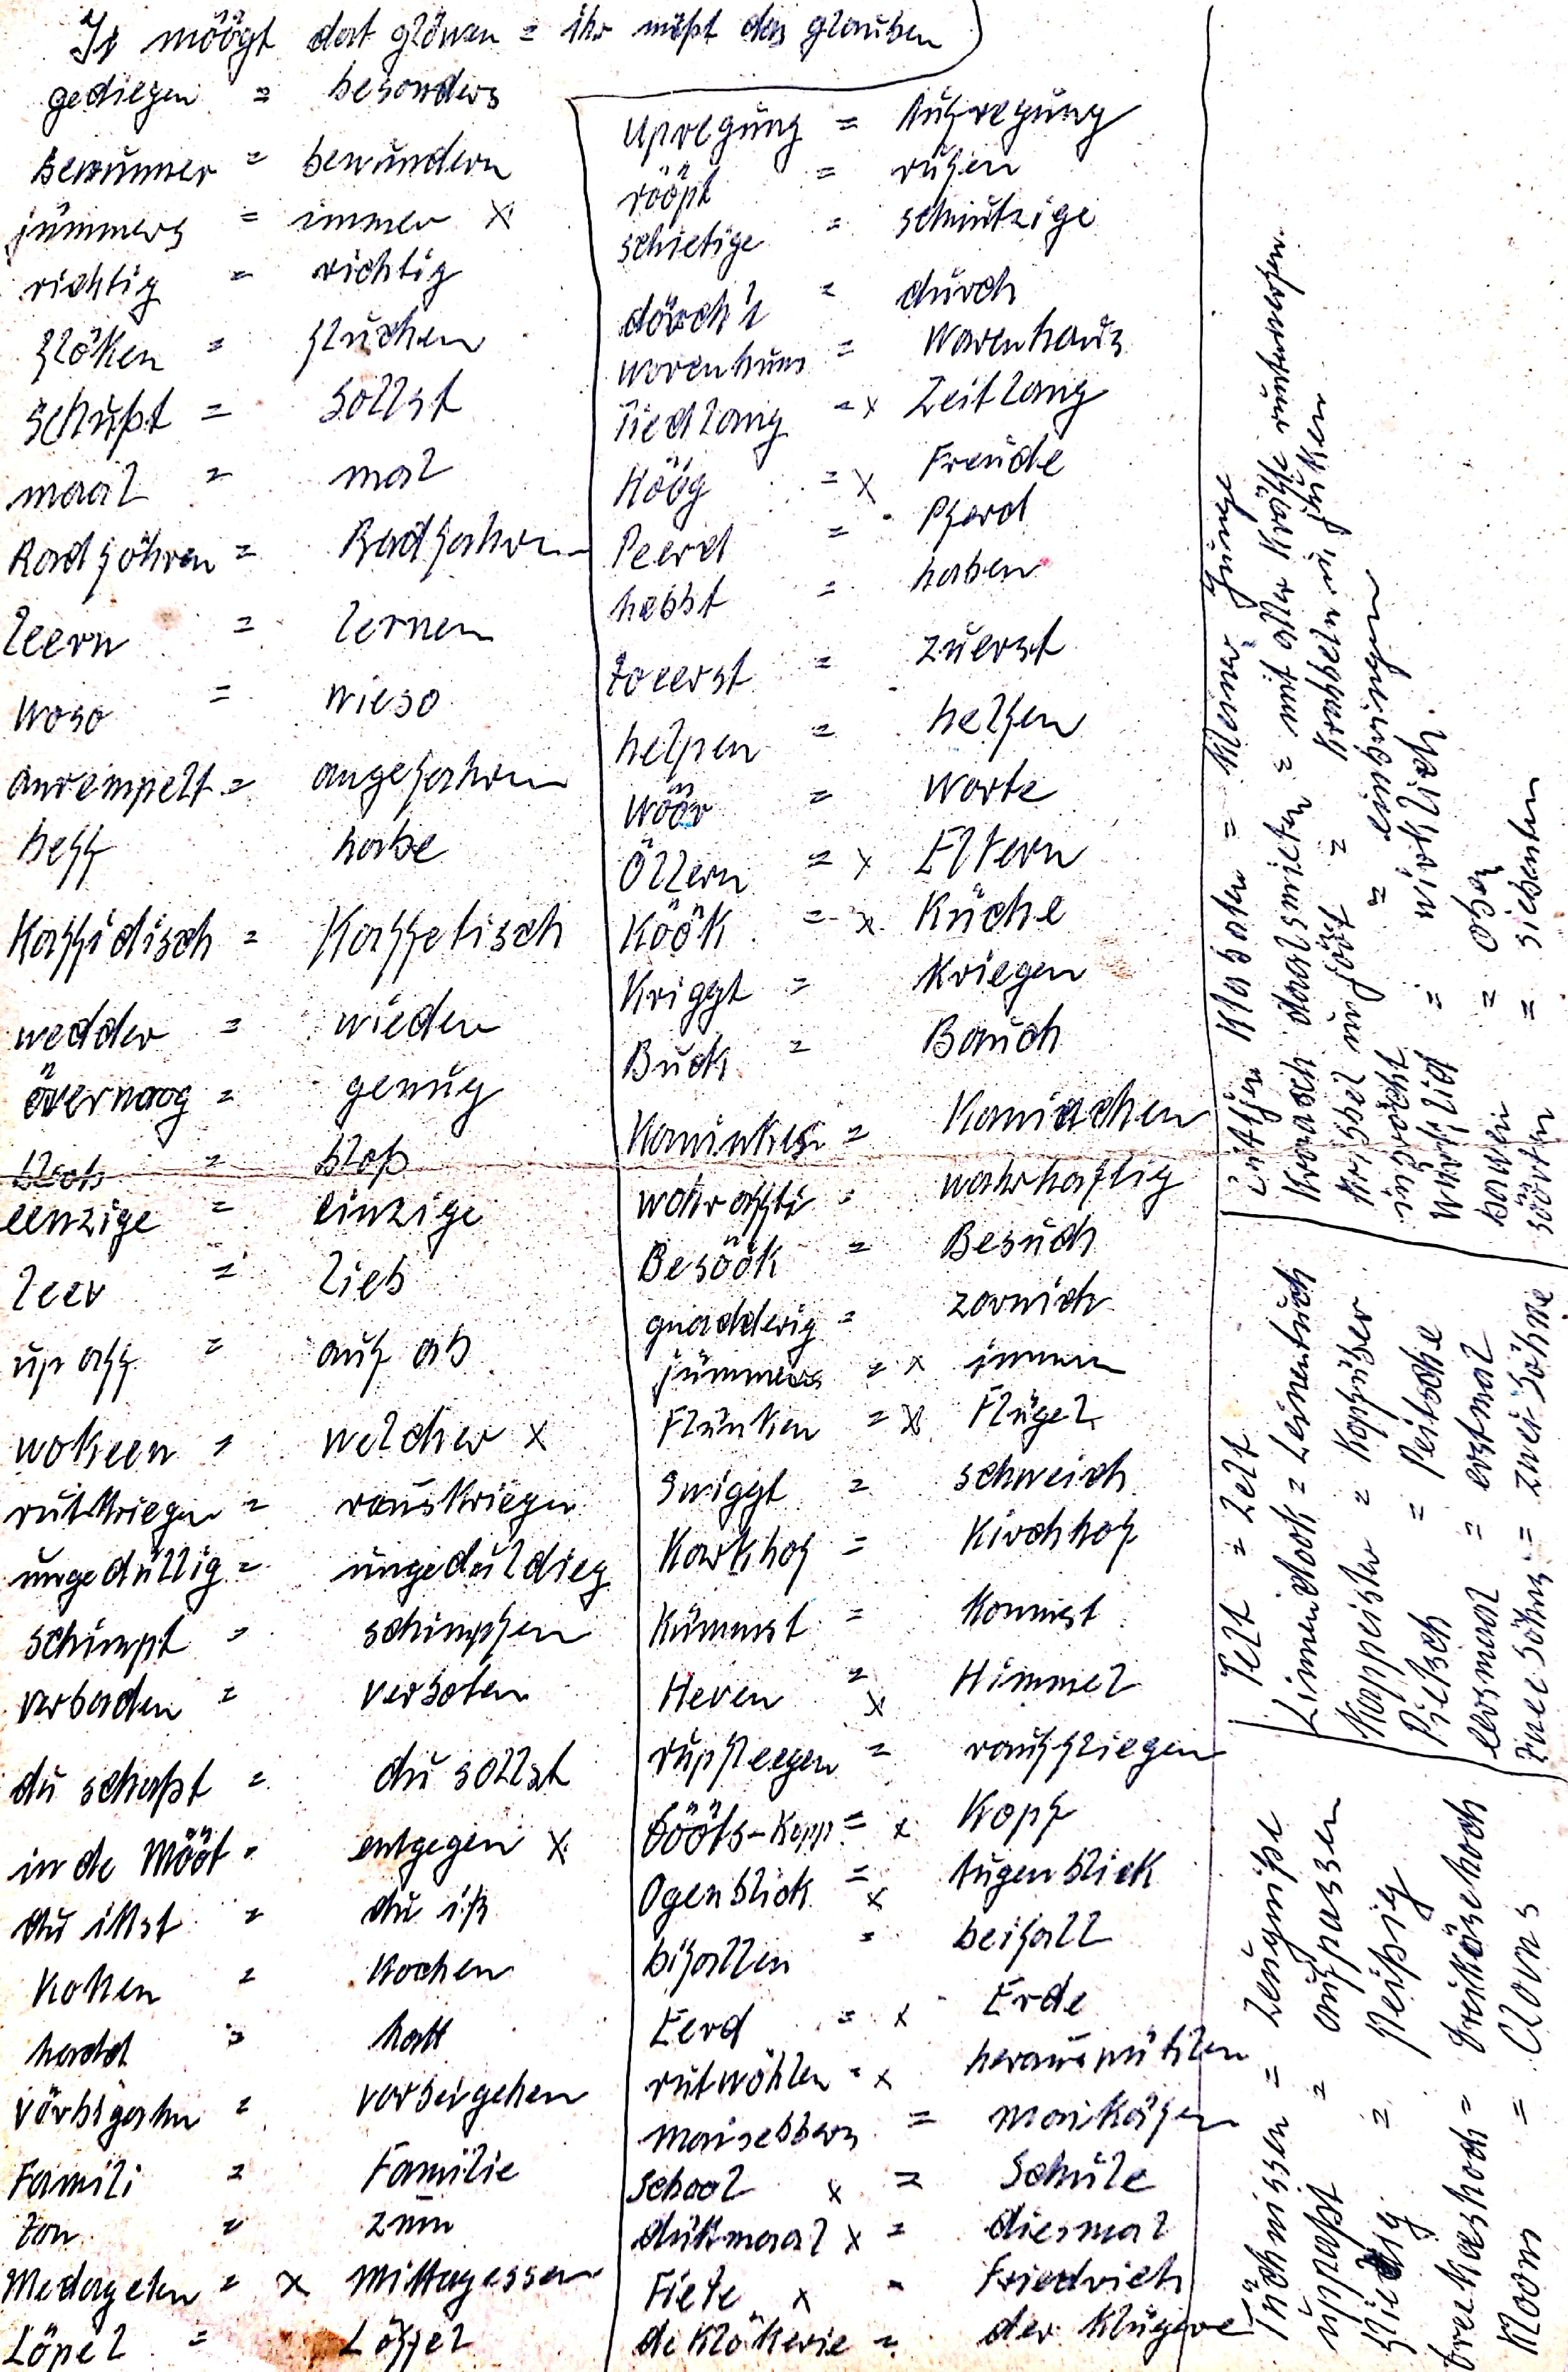 Ji möögt dat glöwen = ihr müßt das glauben
gediegen = besonders
bewunner = bewundern
jümmers = immer x
richtig = richtig
flöken = fluchen
schußt = sollst
maal = mal
Radföhren = Radfahren
leern = lernen
woso = wieso
anrempelt = angefahren
heff habe
Kaffidisch = Kaffetisch
wedder = wieder
övernoog = genug
bloß = bloß
eenzige = einzige
leev = lieb
up aff = auf ab
wokeen = welcher x
rutkriegen = rauskriegen
ungedüllig = ungeduldieg
schimpt = schimpfen
verbaden = verboten
du schaßt = du sollst
in de Mööt = entgegen x
du ittst = du iß
koken = kochen
hadd = hatt
vörbigahn = vorbeigehen
Famili = Familie
ton = zum
Medageten = x Mittagessen
Löpel = Löffel
Upregung = Aufregung
rööpt = rufen
schietige = schmutzige
dörch't = durch
worenhuus = Warenhaus
Tiedlang = x Zeitlang
Höög = x Freude
Peerd = Pferd
hebbt = haben
toeerst = zuerst
helpen = helfen
wöör = Worte
Öllern = x Eltern
Köök = x Küche
kriggt = kriegen
Buck = Bauch
Kaninken = Kaniechen
wohrafti = wahrhaftig
Besöök = Besuch
gnadderig = zornich
jümmers = x immer
Flünken = x Flügel
swiggt = schweich
Karkhof = Kirchhof
kümmst = kommst
Heven = x Himmel
rupfleegen = rauffliegen
Dööts-Kopp = x Kopf
Ogenblick = x Augenblick
bifallen = beifall
Eerd = x Erde
rutwöhlen = x herauswühlen
maisebbers = maikäfer
School x = Schule
dütmaal x = diesmal
Fiete x = Friedrich
de klökerie = der klügere
Lüttjen Klabaten = kleiner Junge
Kraasch daalsmieten = mit aller Kräfte runterwerfen
Kribbel un jöökt = krabbeln u. jucken
inbröcht = einbringen
würklich = wirklich
baven = oben
söövten = siebenten
Telt = Zelt
Linnendook = Leinentuch
Koppeister = kopfüber
Pietsch = Peitsche
eersmaal = erstmal
twee Söhns = zwei Söhne
Tüchnissen = Zeugniße
uppaßt = aufpassen
flietig = fleißig
dreekäshoch = dreikäsehoch
Kloons = Clowns